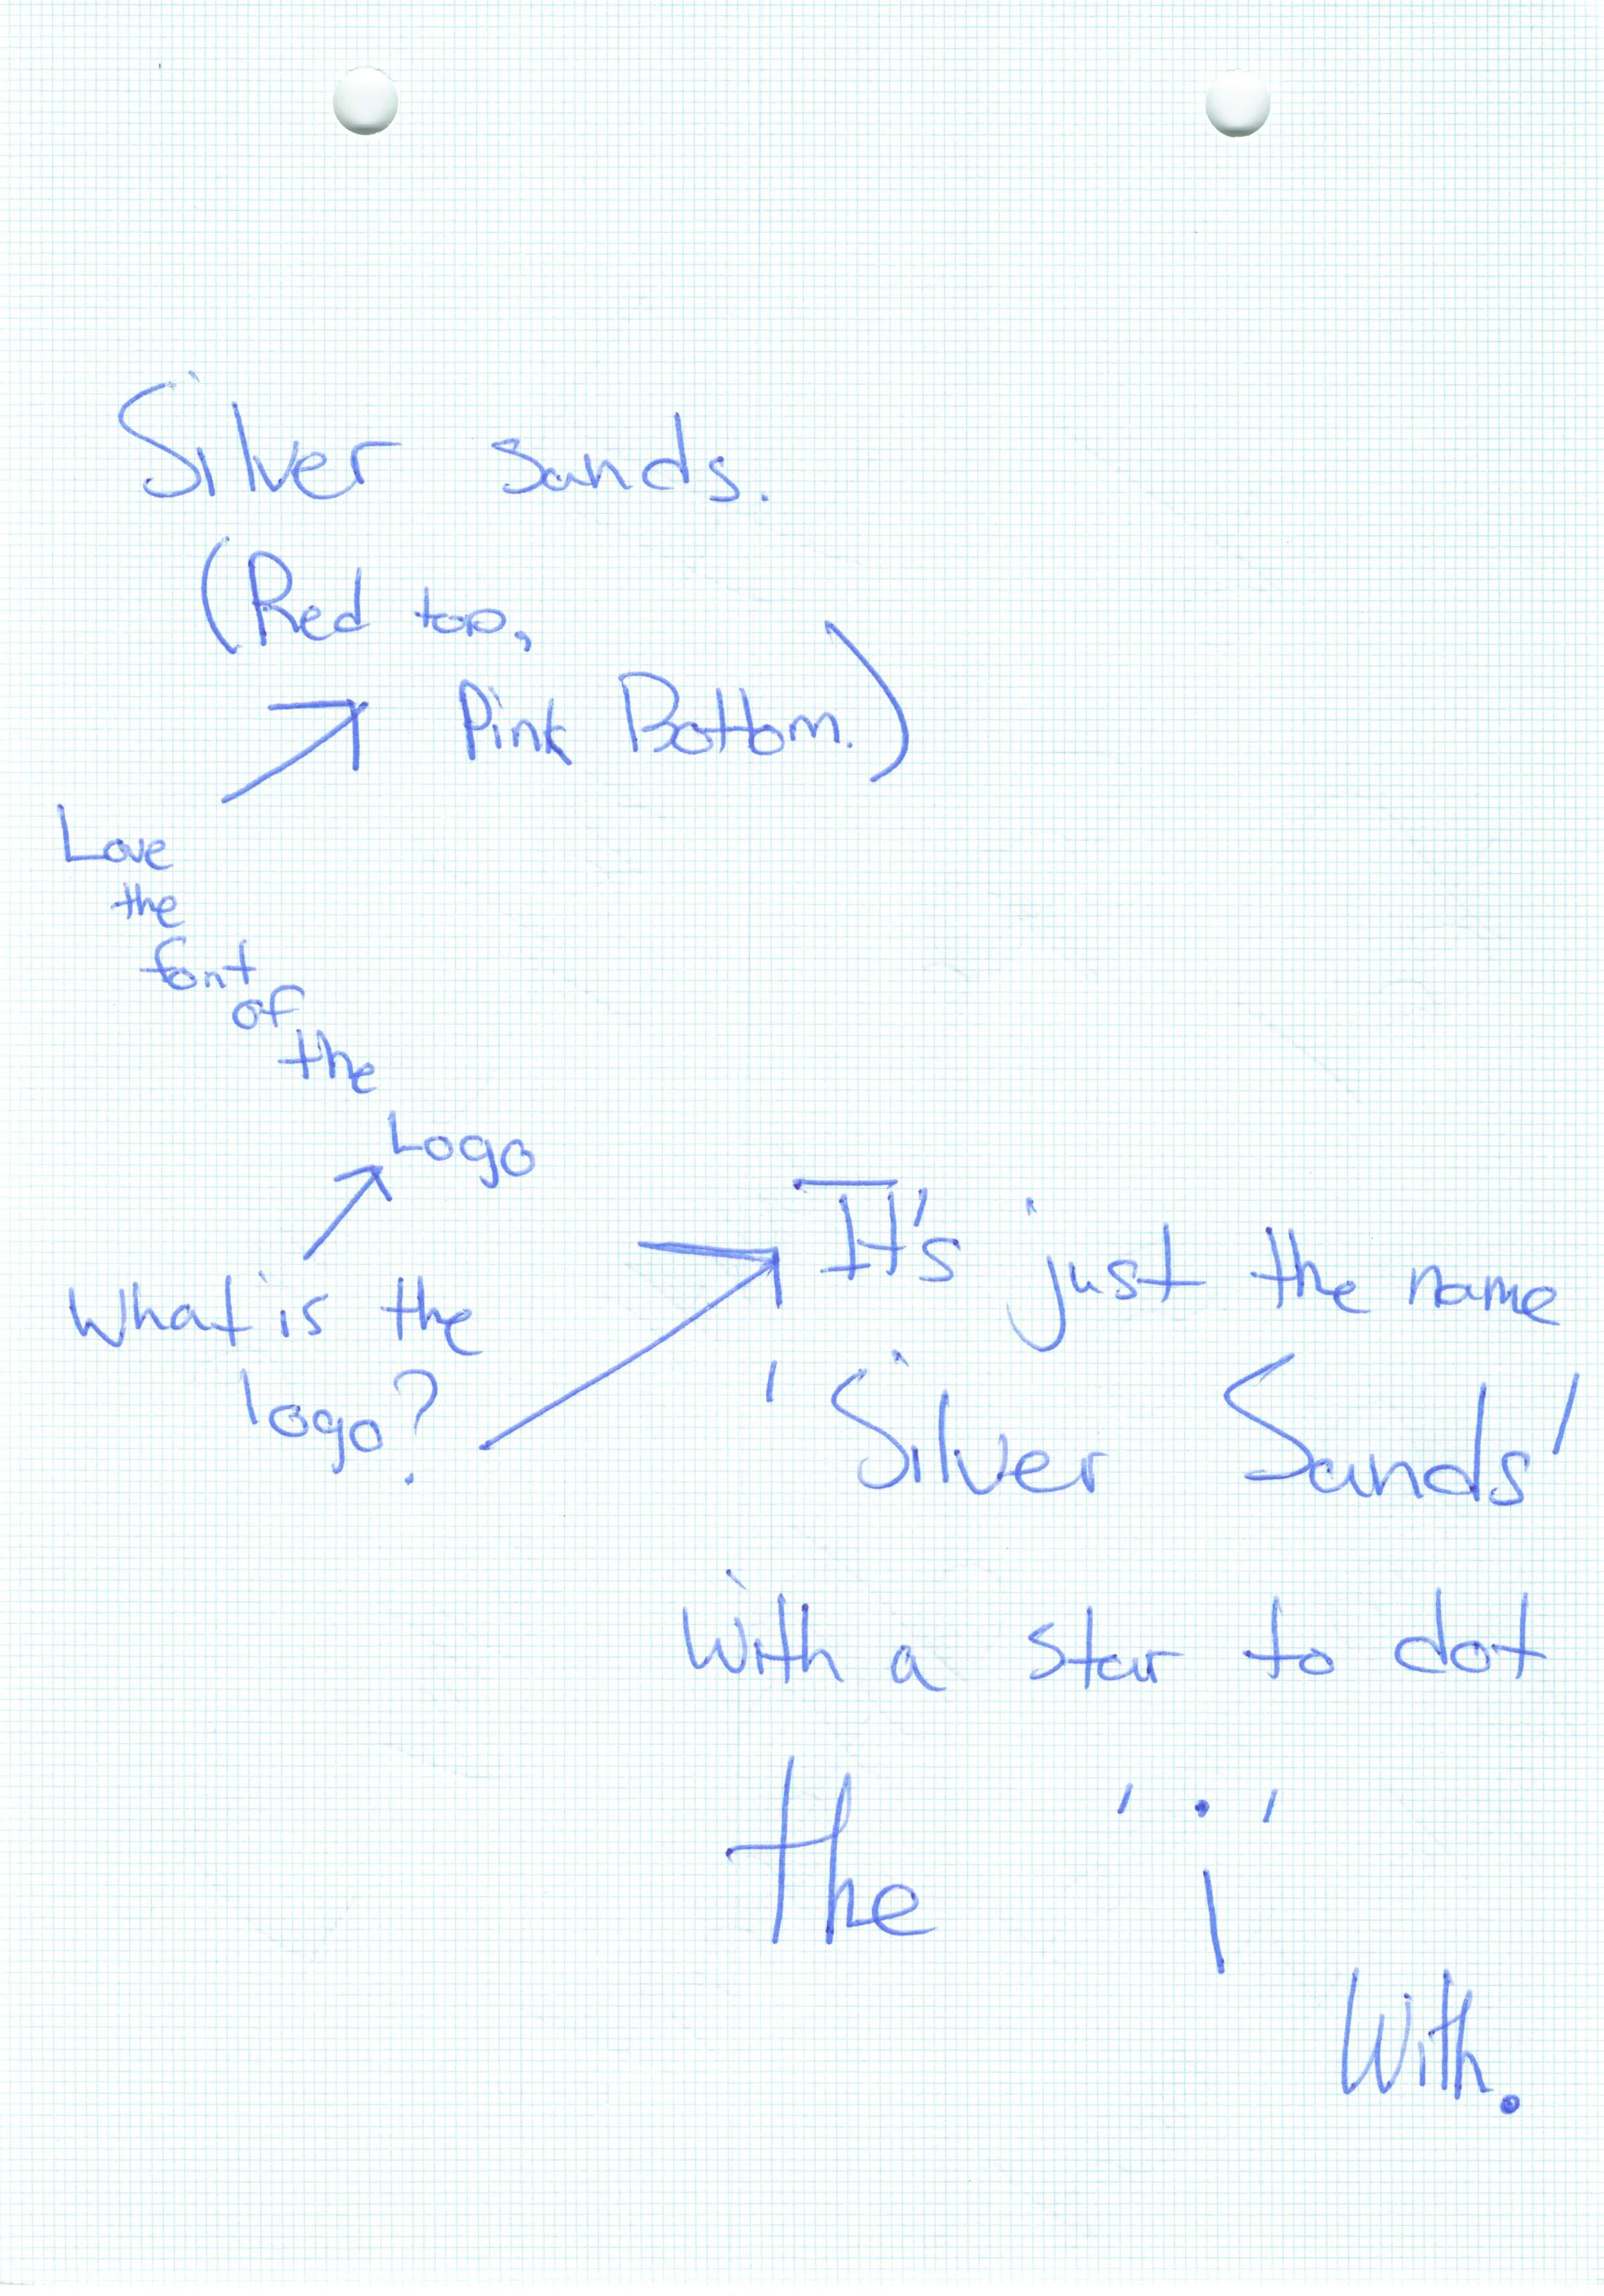 Silver sands.
(Red top,
Pink Bottom.)
Love
the
font
of
the
Logo
What is the
logo?
It's just the name
'Silver Sands'
with a star to dot
the 'i'
With.